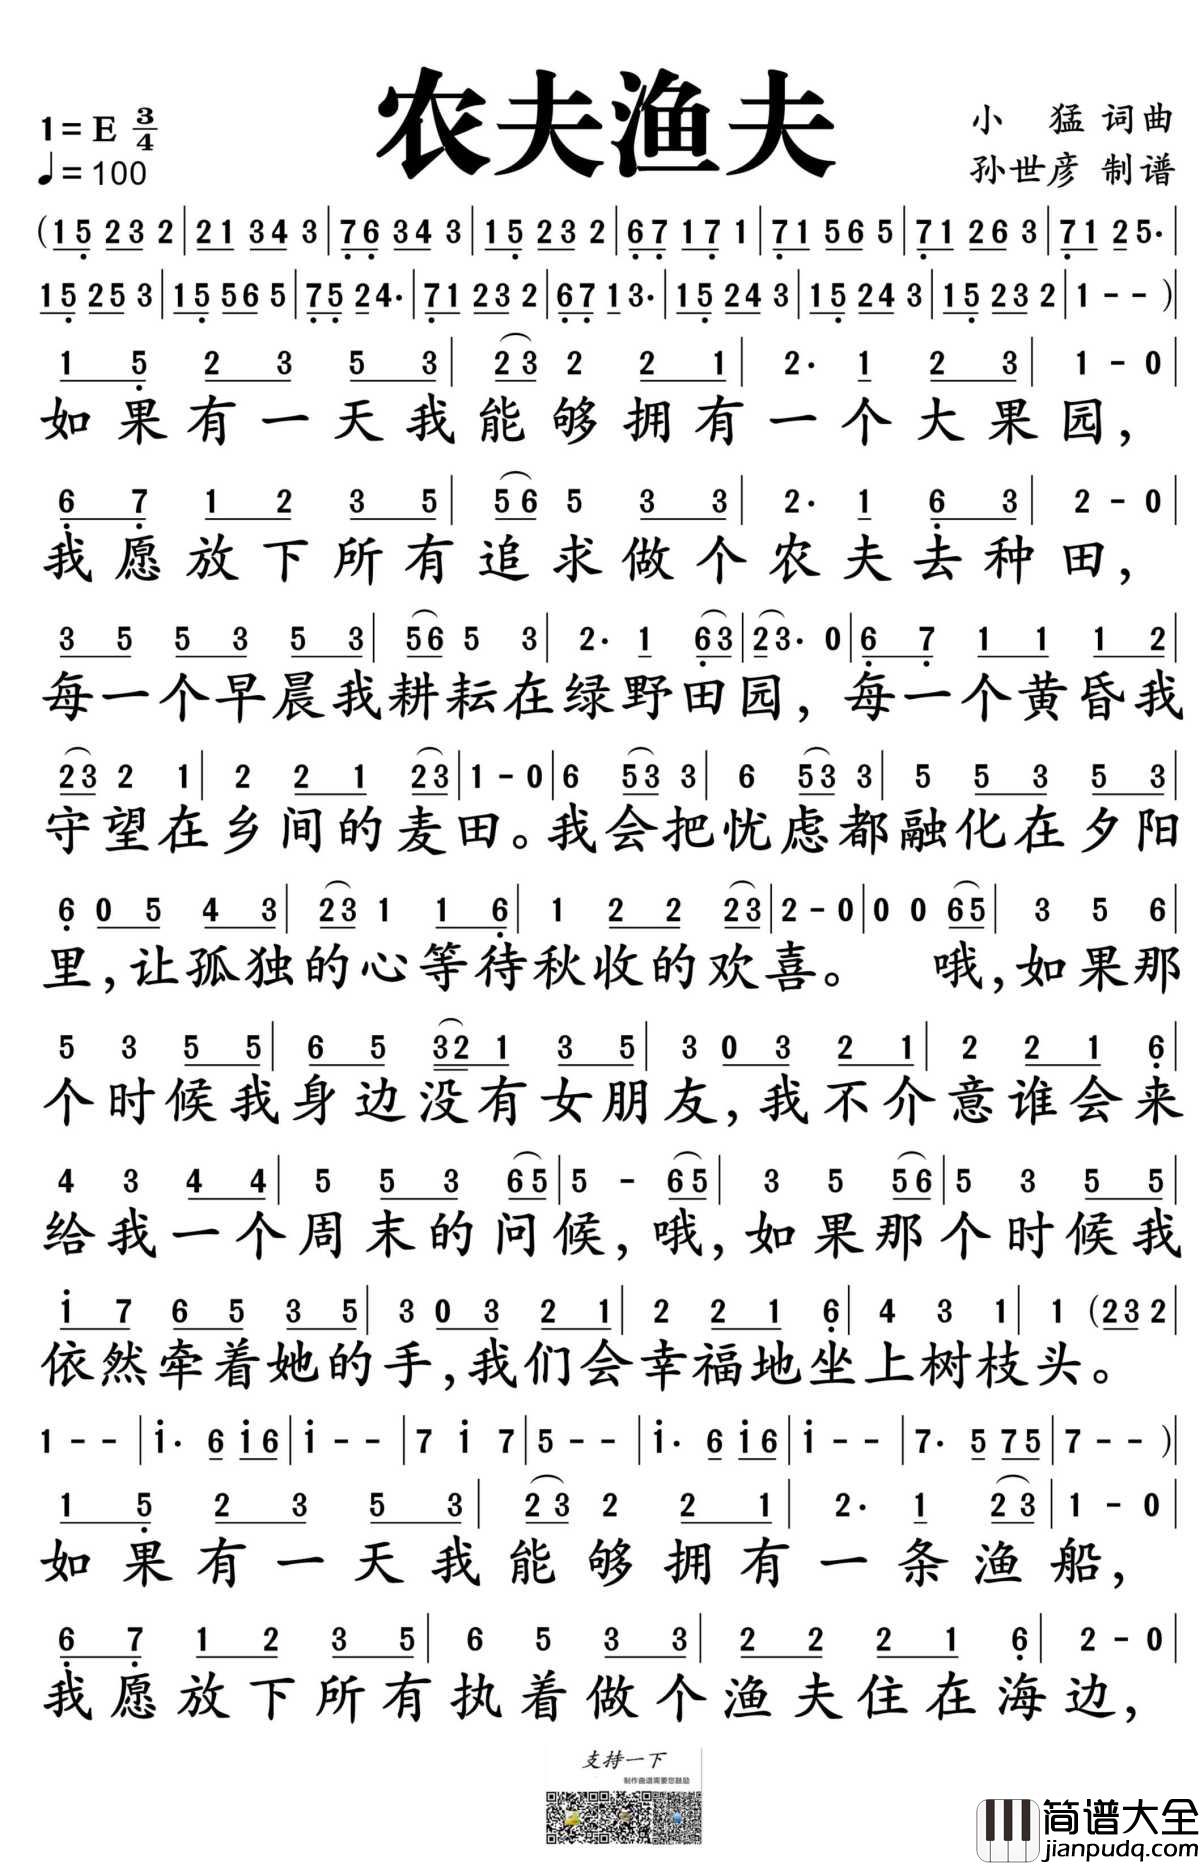 农夫渔夫
1=E 3/4
♩=100
小 猛 词曲
孙世彦 制谱
(15 23 2|21 34 3|76 34 3|15 23 2|67 17 1|71 56 5|71 26 3|71 25·|
15 25 3|15 56 5|75 24·|71 23 2|67 13·|15 24 3|15 24 3|15 23 2|1--)|
1 5 2 3 5 3|23 2 2 1|2· 1 2 3|1-0|
如果有一天我能够拥有一个大果园,
6 7 1 2 3 5|56 5 3 3|2· 1 6 3|2-0|
我愿放下所有追求做个农夫去种田,
3 5 5 3 5 3|56 5 3|2· 1 63|23· 0|6 7 1 1 1 2|
每一个早晨我耕耘在绿野田园,每一个黄昏我
23 2 1|2 2 1 23|1-0|6 53 3|6 53 3|5 5 3 5 3|
守望在乡间的麦田。我会把忧虑都融化在夕阳
6 0 5 4 3|23 1 1 6|1 2 2 23|2-0|0 0 65|3 5 6|
里,让孤独的心等待秋收的欢喜。 哦,如果那
5 3 5 5|6 5 32 1 3 5|3 0 3 2 1|2 2 1 6|
个时候我身边没有女朋友,我不介意谁会来
4 3 4 4|5 5 3 65|5 - 65|3 5 56|5 3 5 5|
给我一个周末的问候,哦,如果那个时候我
i 7 6 5 3 5|3 0 3 2 1|2 2 1 6|4 3 1|1 (23 2|
依然牵着她的手,我们会幸福地坐上树枝头。
1--|i· 6 i6|i--|7 i 7|5--|i· 6 i6|i--|7· 5 75|7--)|
1 5 2 3 5 3|23 2 2 1|2· 1 23|1-0|
如果有一天我能够拥有一条渔船,
6 7 1 2 3 5|6 5 3 3|2 2 2 1 6|2-0|
我愿放下所有执着做个渔夫住在海边,
支持一下
制作曲谱需要您鼓励
简谱大全
jianpudq.com